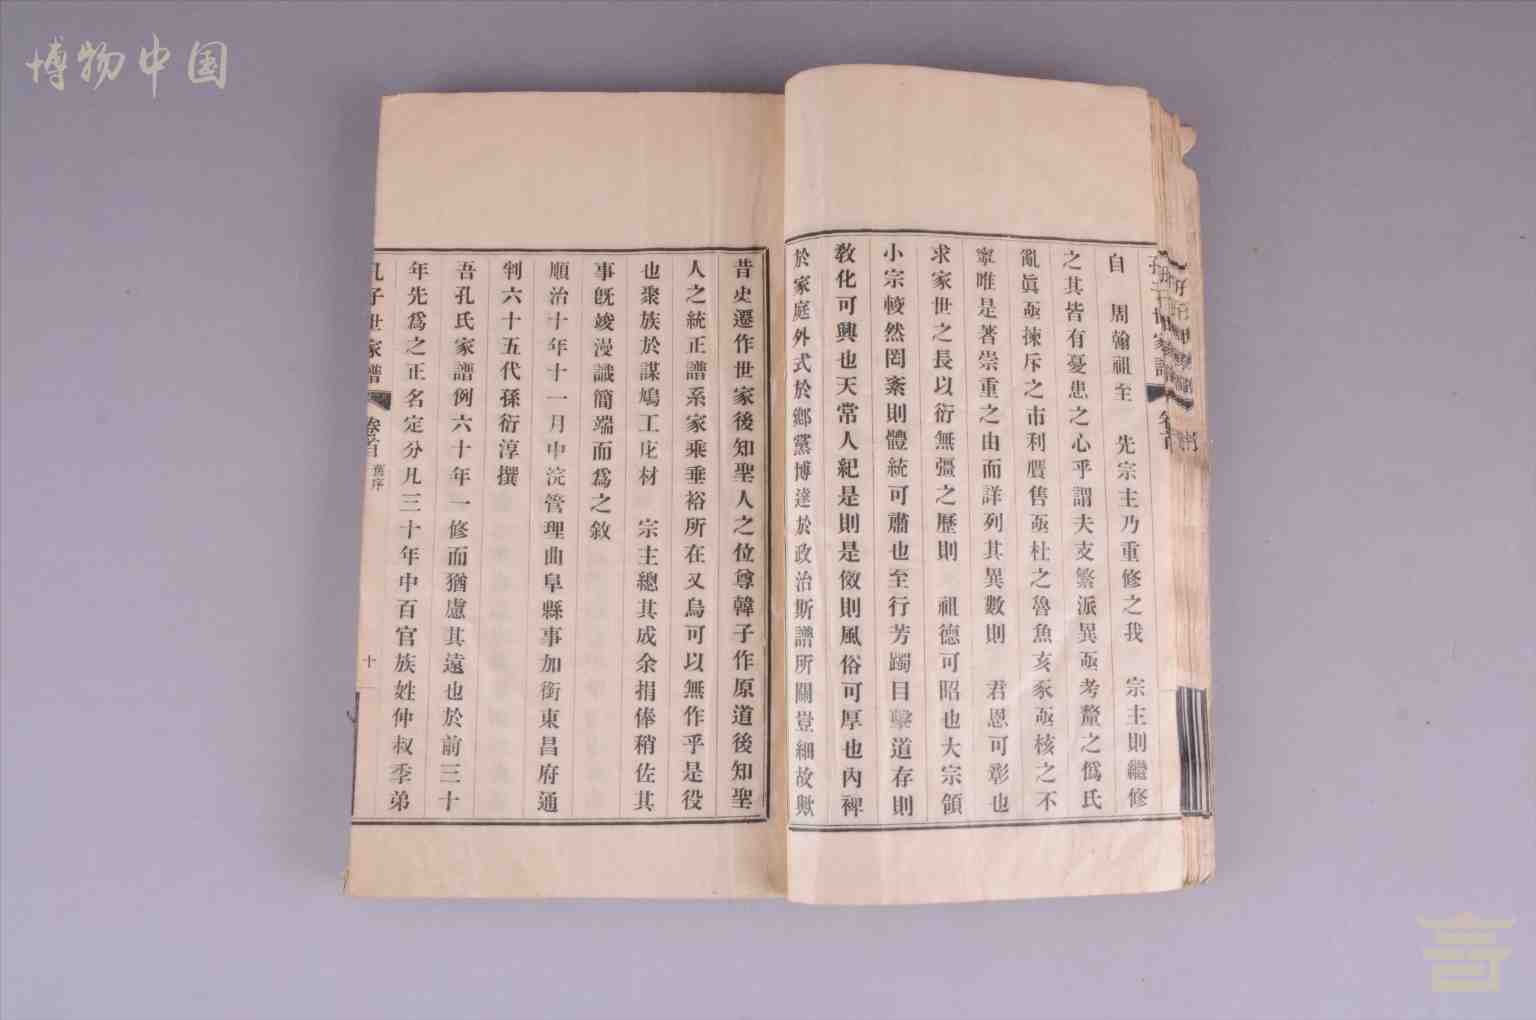 博物中国
孔子世家譜 卷首
自 周翰祖至 先宗主乃重修之我 宗主則繼修
之其皆有憂患之心乎謂夫支繁派異亟考釐之僞氏
亂眞亟揀斥之市利贋售亟杜之魯魚亥豕亟核之不
寧唯是著崇重之由而詳列其異數則 君恩可彰也
求家世之長以衍無疆之歷則 祖德可昭也大宗領
小宗幟然罔紊則體統可肅也至行芳躅目擊道存則
敎化可興也天常人紀是則是傚則風俗可厚也內裨
於家庭外式於鄉黨博達於政治斯譜所關豈細故歟
昔史遷作世家後知聖人之位尊韓子作原道後知聖
人之統正譜系家乘垂裕所在又烏可以無作乎是役
也聚族於謀鳩工庀材 宗主總其成余捐俸稍佐其
事旣竣漫識簡端而爲之敘
順治十年十一月中浣管理曲阜縣事加銜東昌府通
判六十五代孫衍淳撰
吾孔氏家譜例六十年一修而猶慮其遠也於前三十
年先爲之正名定分凡三十年中百官族姓仲叔季弟
孔子世家譜 卷首 舊序
十